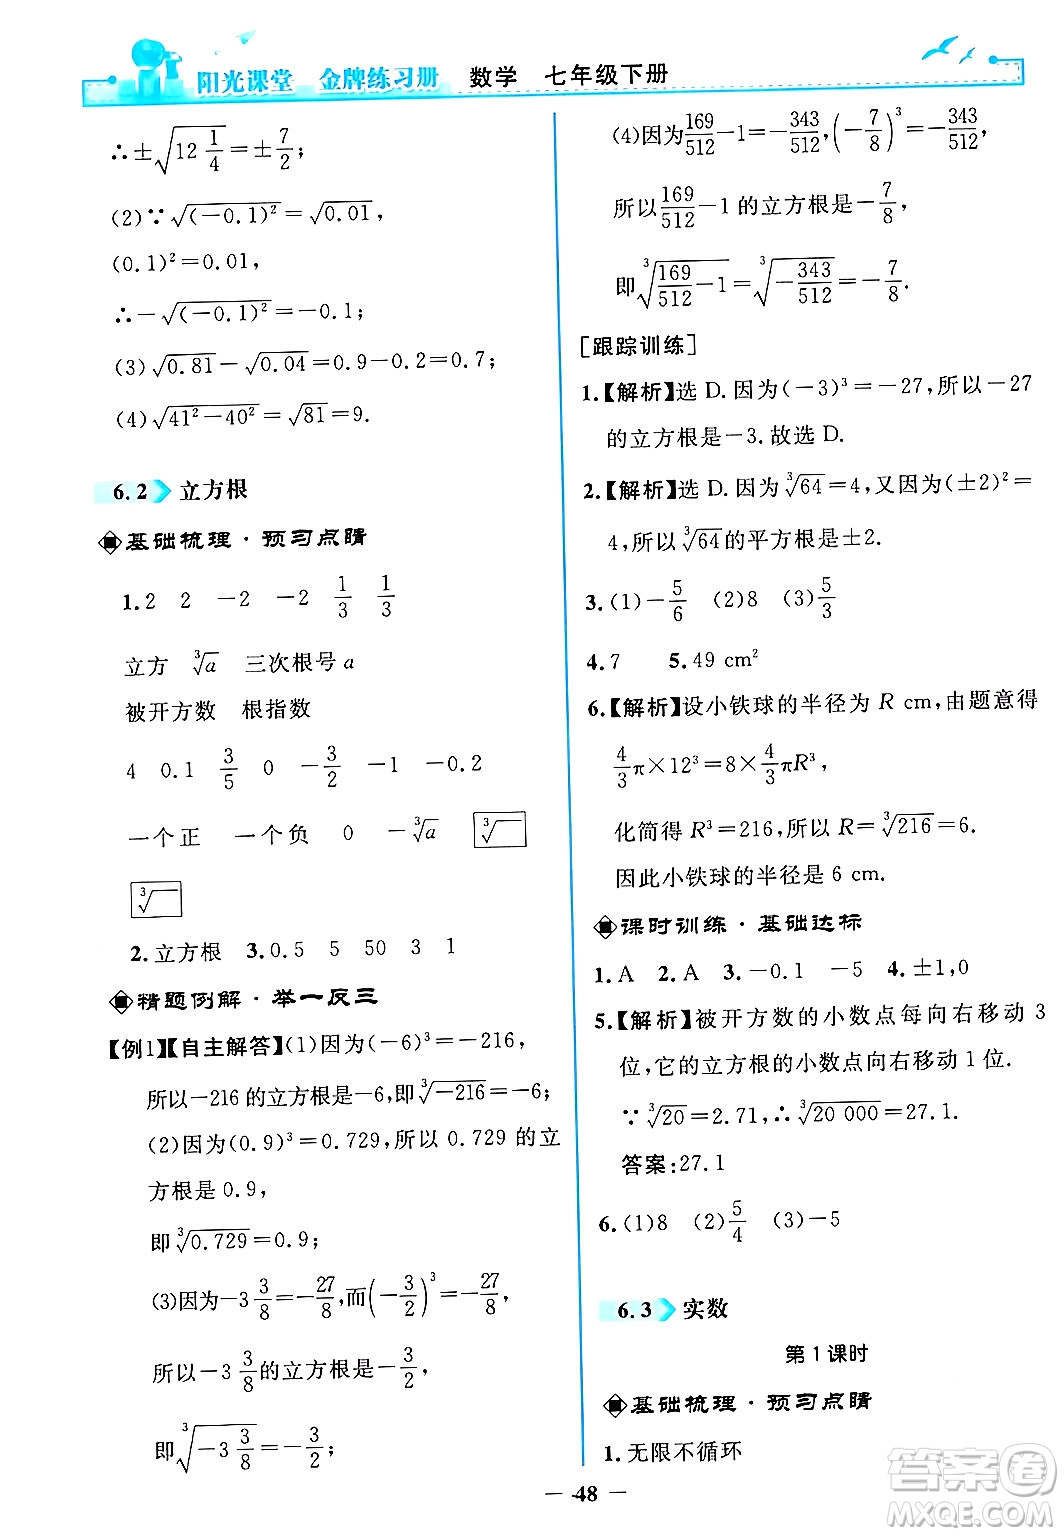 阳光课堂 金牌练习册 数学 七年级下册
∴±√(12 1/4)=±7/2;
(2)∵√((-0.1)²)=√0.01,
(0.1)²=0.01,
∴-√((-0.1)²)=-0.1;
(3)√0.81-√0.04=0.9-0.2=0.7;
(4)√(41²-40²)=√81=9.
6.2 立方根
基础梳理·预习点睛
1.2 2 -2 -2 1/3 1/3
立方 ∛a 三次根号 a
被开方数 根指数
4 0.1 3/5 0 -3/2 -1 -0.2
一个正 一个负 0 -∛a ∛
∛
2.立方根 3.0.5 5 50 3 1
精题例解·举一反三
【例1】【自主解答】(1)因为(-6)³=-216,
所以-216 的立方根是-6,即∛(-216)=-6;
(2)因为(0.9)³=0.729,所以 0.729 的立
方根是 0.9,
即∛0.729=0.9;
(3)因为-3 3/8=-27/8,而(-3/2)³=-27/8,
所以-3 3/8的立方根是-3/2,
即∛(-3 3/8)=-3/2;
(4)因为169/512-1=-343/512,(-7/8)³=-343/512,
所以169/512-1的立方根是-7/8,
即∛(169/512-1)=∛(-343/512)=-7/8.
[跟踪训练]
1.【解析】选 D.因为(-3)³=-27,所以-27
的立方根是-3.故选 D.
2.【解析】选 D.因为∛64=4,又因为(±2)²=
4,所以∛64的平方根是±2.
3.(1)-5/6 (2)8 (3)5/3
4.7 5.49 cm²
6.【解析】设小铁球的半径为 R cm,由题意得
4/3π×12³=8×4/3πR³,
化简得 R³=216,所以 R=∛216=6.
因此小铁球的半径是 6 cm.
课时训练·基础达标
1.A 2.A 3.-0.1 -5 4.±1,0
5.【解析】被开方数的小数点每向右移动 3
位,它的立方根的小数点向右移动 1 位.
∵∛20=2.71,∴∛20 000=27.1.
答案:27.1
6.(1)8 (2)5/4 (3)-5
6.3 实数
第1课时
基础梳理·预习点睛
1.无限不循环
— 48 —
答案圈
MXQE.COM